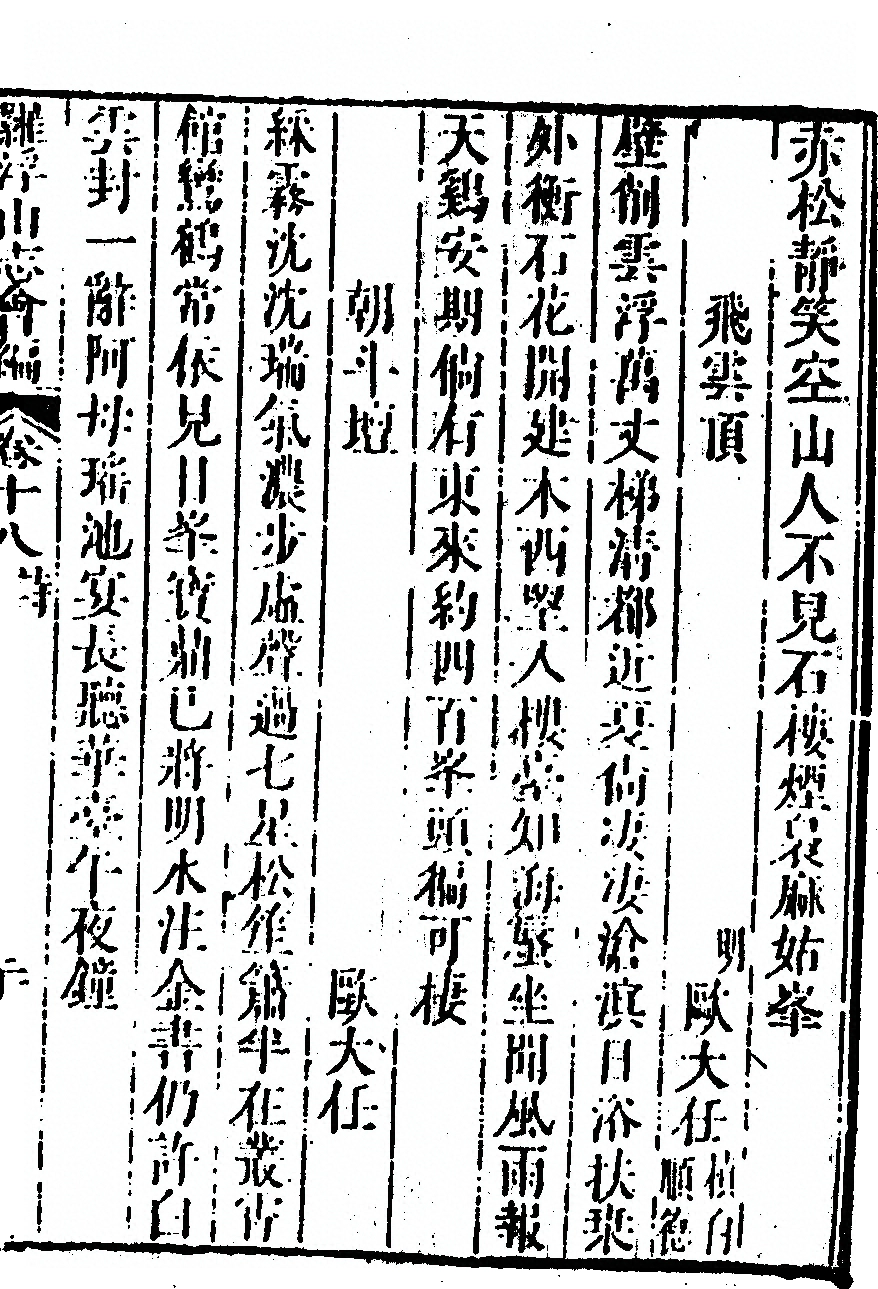 赤松靜笑空山人不見石樓煙裊麻姑峯
飛雲頂
明歐大任楨伯順德
壁削雲浮萬丈梯清都近夏尙凄凄滄濱日浴扶桒
外衡石花開建木西望人樓當如海蜃坐聞風雨報
天鷄安期倘有東來約四百峯頭徧可棲
朝斗壇
歐大任
綵霧沈沈瑞氣濃步虛聲過七星松笙簫半在叢霄
館鸞鶴常依見日峯寶鼎已將明水注金書仍許白
雲封一辭阿母瑤池宴長聽華臺午夜鐘
羅浮山志會編
卷十八
詩